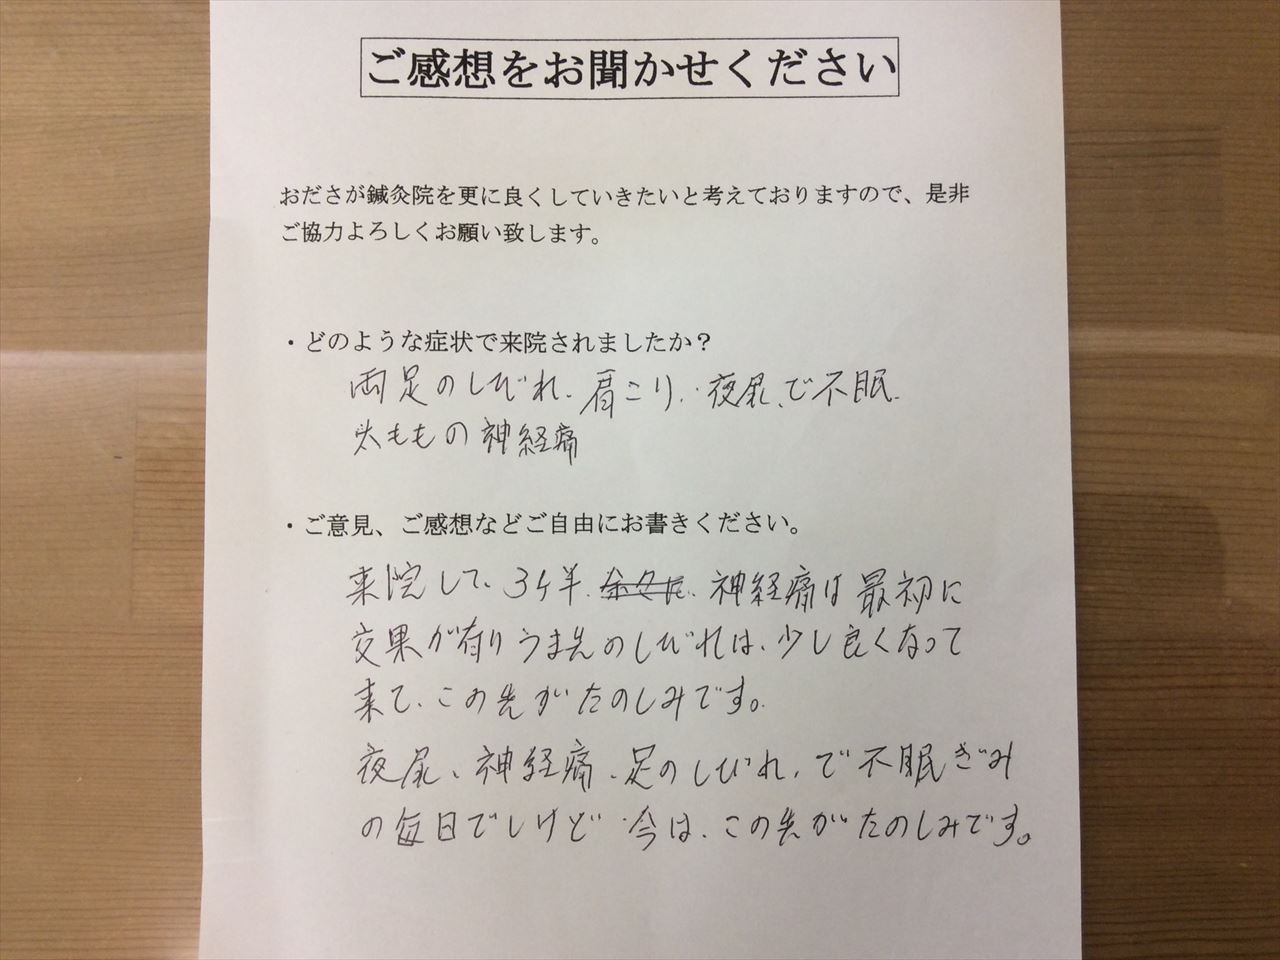 ご感想をお聞かせください
おださが鍼灸院を更に良くしていきたいと考えておりますので、是非
ご協力よろしくお願い致します。
・どのような症状で来院されましたか？
両足のしびれ、肩こり、夜尿、で不眠、
太ももの神経痛
・ご意見、ご感想などご自由にお書きください。
来院して、3ヶ半、神経痛は最初に
交果が有りつま先のしびれは、少し良くなって
来て、この先がたのしみです。
夜尿、神経痛、足のしびれ、で不眠ぎみ
の毎日でしけど今は、この先がたのしみです。